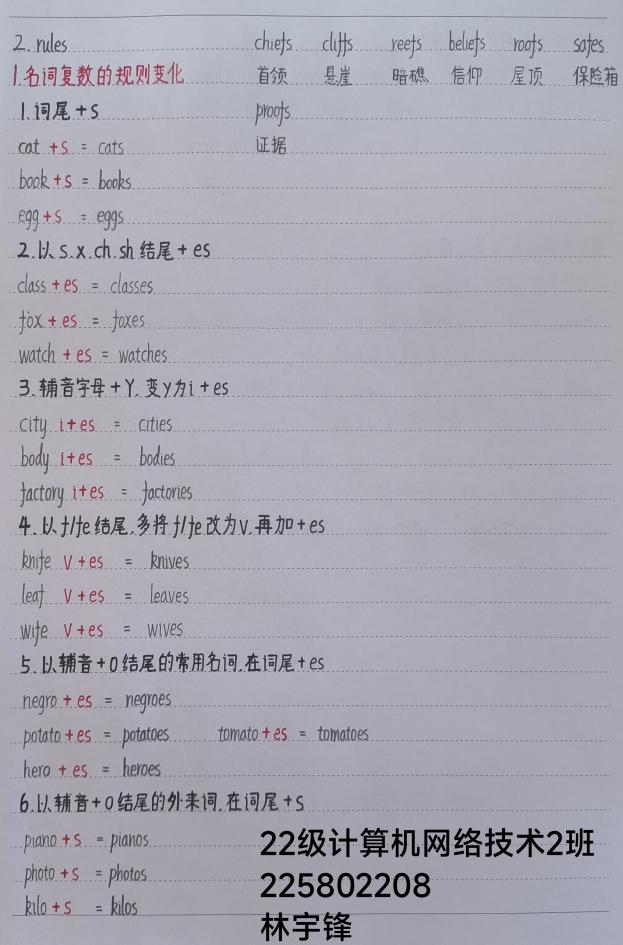 2. rules chiefs cliffs reefs beliefs roofs safes
1.名词复数的规则变化 首领 悬崖 暗礁 信仰 屋顶 保险箱
1.词尾+s proofs
cat +s = cats 证据
book +s = books
egg +s = eggs
2.以s.x.ch.sh结尾+es
class +es = classes
fox +es = foxes
watch +es = watches
3.辅音字母+Y,变y为i+es
city i+es = cities
body i+es = bodies
factory i+es = factories
4.以f/fe结尾,多将f/fe改为v,再加+es
knife v+es = knives
leaf v+es = leaves
wife v+es = wives
5.以辅音+O结尾的常用名词,在词尾+es
negro +es = negroes
potato +es = potatoes tomato +es = tomatoes
hero +es = heroes
6.以辅音+O结尾的外来词,在词尾+s
piano +s = pianos
photo +s = photos
kilo +s = kilos
22级计算机网络技术2班
225802208
林宇锋